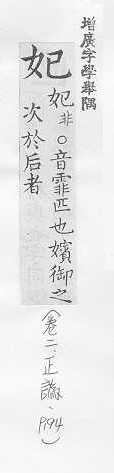 增廣字學舉隅
妃
妃非○音霏匹也嬪御之
次於后者
（卷二、正譌、P194）